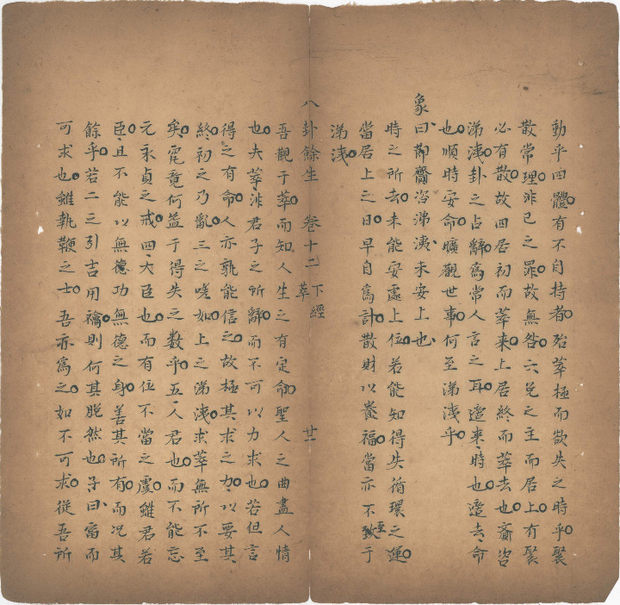 動乎四體有不自持者殆萃極而欲失之時乎裂
散常理非已之罪故無咎六兌之主而居上有裂
必有散故四居初而萃來上居終而萃去也齎咨
涕洟卦之占辭為常人言之耳遼來時也遼去命
也順時安命曠觀世事何至涕洟乎
象曰齎咨涕洟未安上也
時之所去未能安處上位若能知得失循環之運
當居上之日早自為計散財以養福當亦不致于
涕洟
八卦餘生 卷十二 下經 萃 廿
吾觀于萃而知人生之有定命聖人之曲盡人情
也夫萃非君子之所辭而不可以力求也若但言
得之有命人亦孰能信之故極其求之力以要其
終初之乃亂三之嗟如上之涕洟求萃無所不至
矣究竟何益于得失之數乎五人君也而不能忘
元永貞之戒四大臣也而有位不當之虞雖君若
臣且不能以無德功無德之身善其所有而況其
餘乎若二之引吉用禴則何其脫然也子曰富而
可求也雖執鞭之士吾亦為之如不可求從吾所